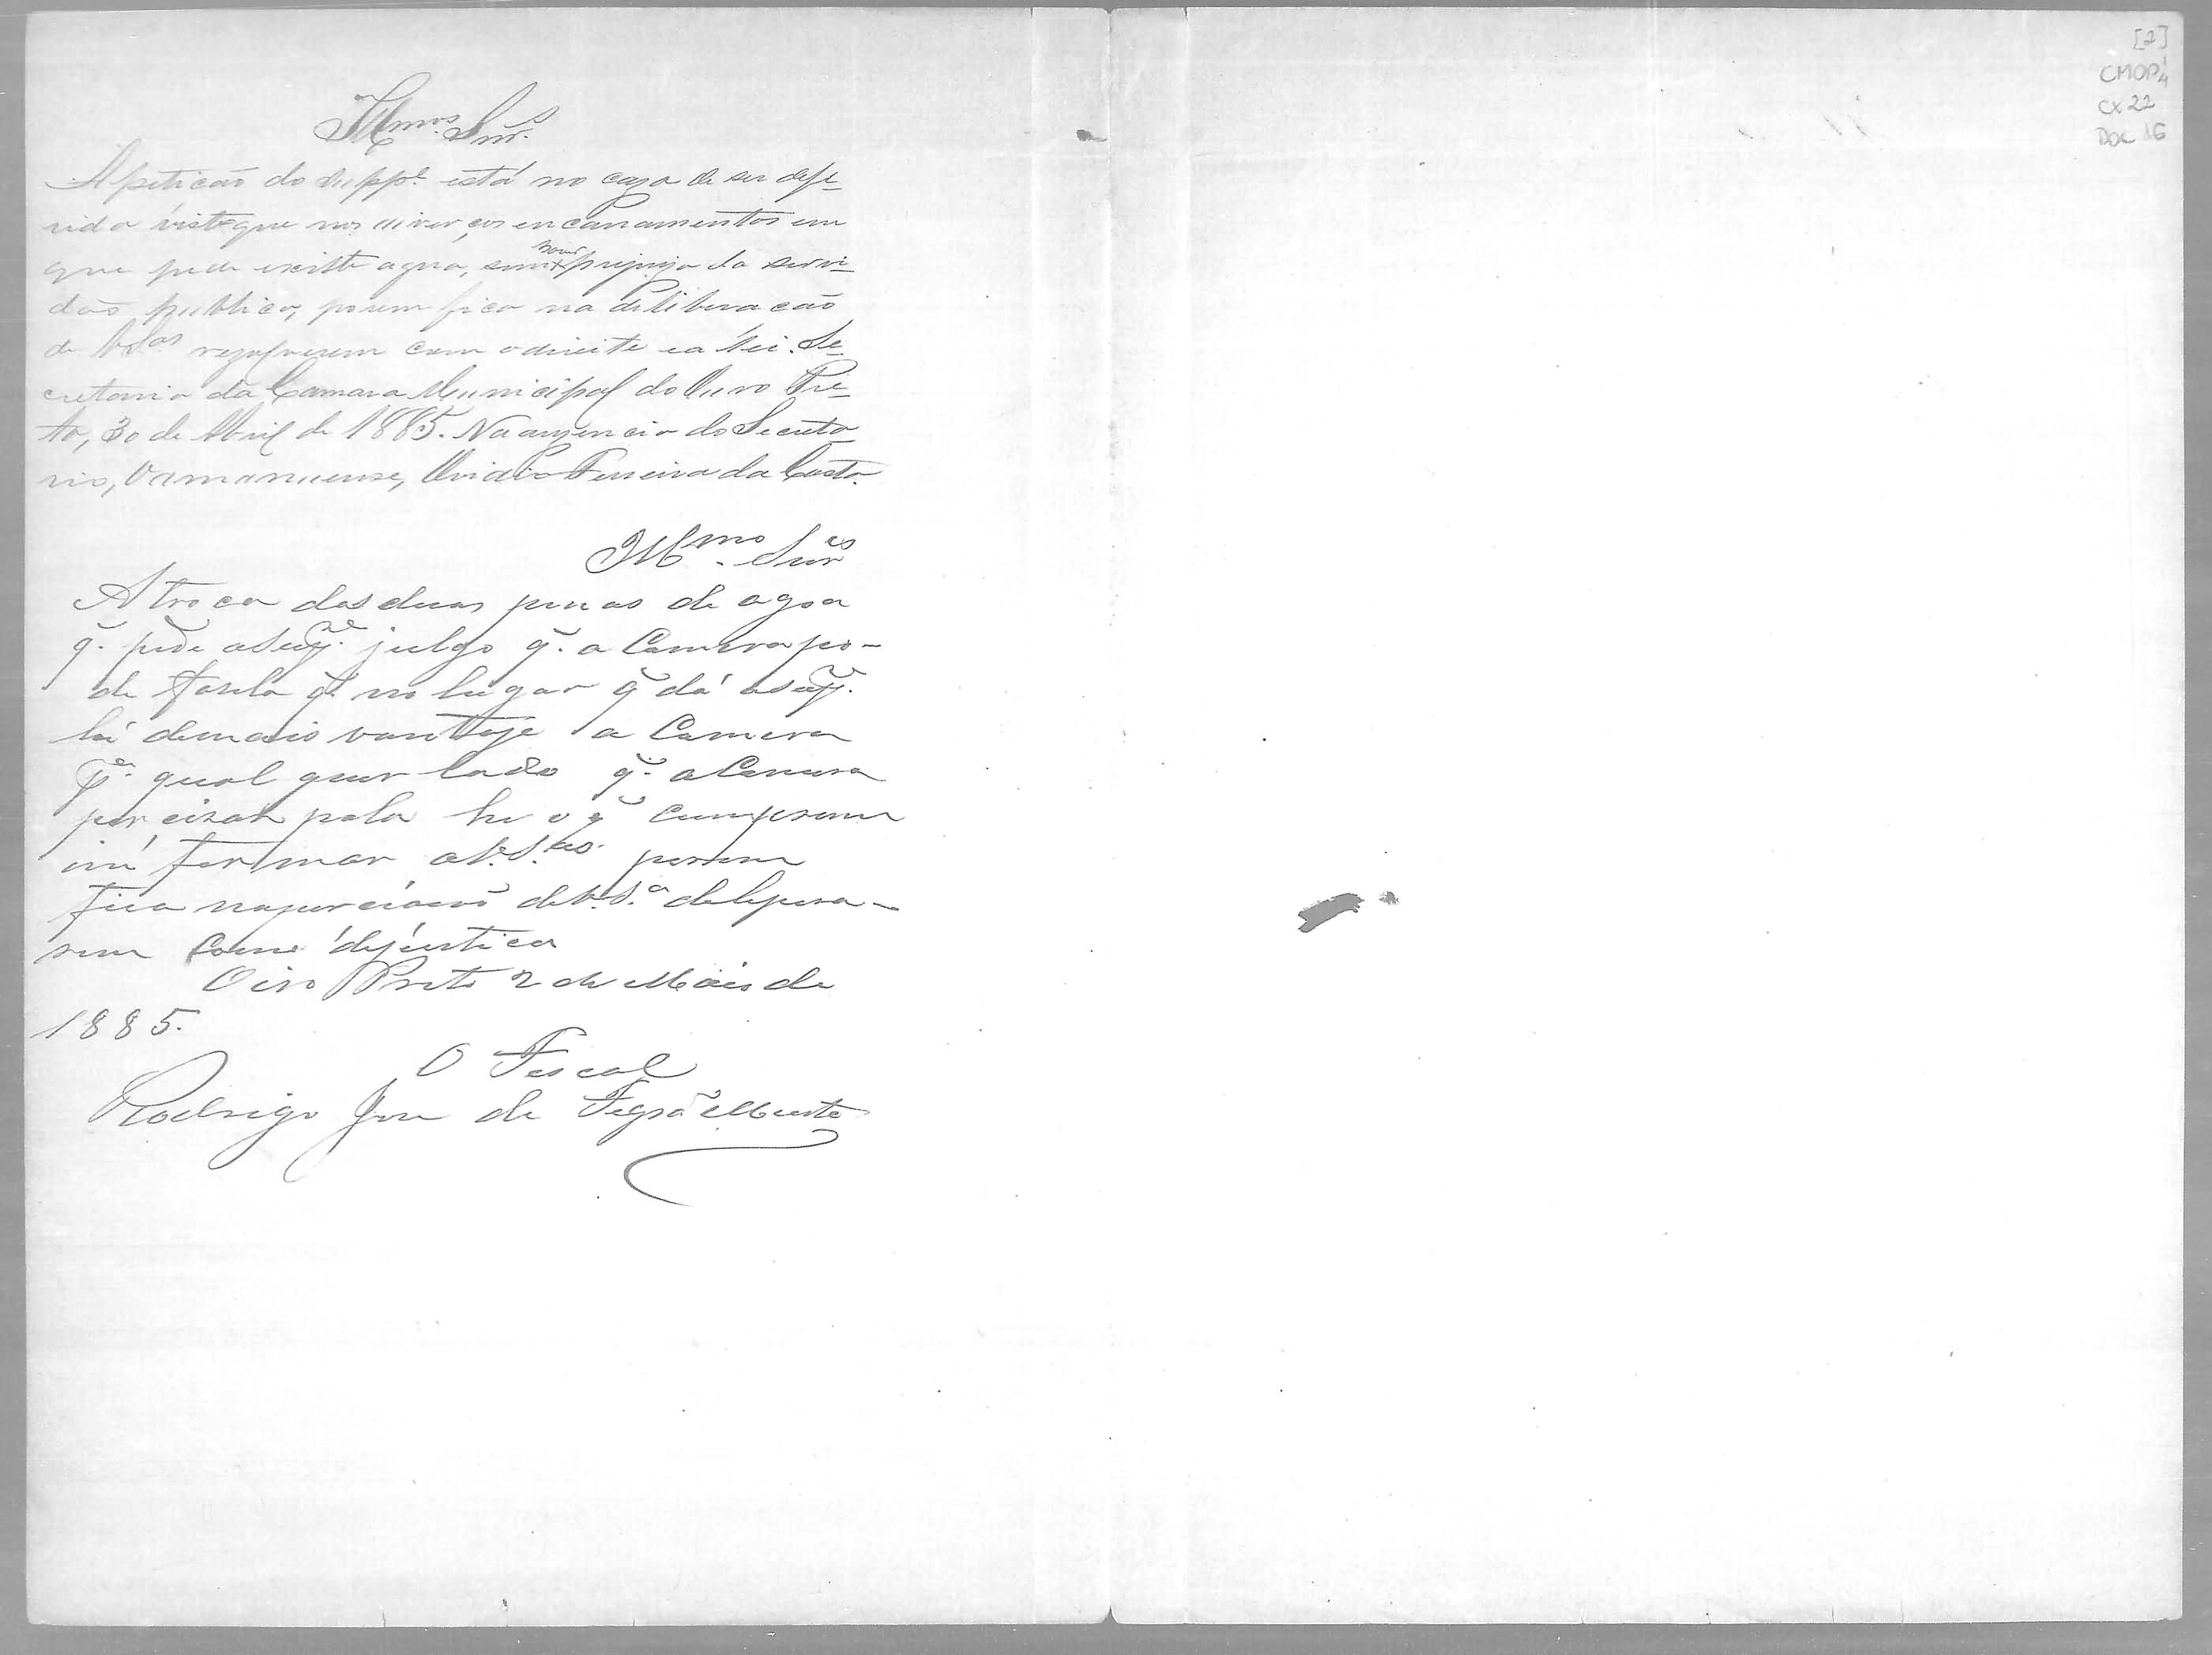 Illmos. Snrs.
A petição do suppe. está no cazo de ser defe-
rida visto que nos diverços encanamentos em
que pede existe agua, sem prejuizo da servi-
dão publica, porem fica na deliberacão
de VSas rezolverem com o direito e a lei. Se-
cretaria da Camara Municipal do Ouro Pre-
to, 30 de Abril de 1885. Na auzencia do Secreta-
rio, O amanuense, Ovidio Ferreira da Costa.
Illmo. Snres
A troca das duas penas de agoa
q̃. pede a supe. julgo q̃. a Camera po-
de fazela q̃. no lugar q̃ dá a supe.
há de mais vantaje a Camera
pa. qual quer lado q̃. a Camera
percizar pola he o q̃ cumpreme
in formar a V.Sas. porem
fica na de V.Sa.
rem Como de justica
Oiro Preto 2 de Maio de
1885.
O Fiscal
Rodrigo Jose de Figdo Murta
[2]
CMOP
CX 22
DOC 16